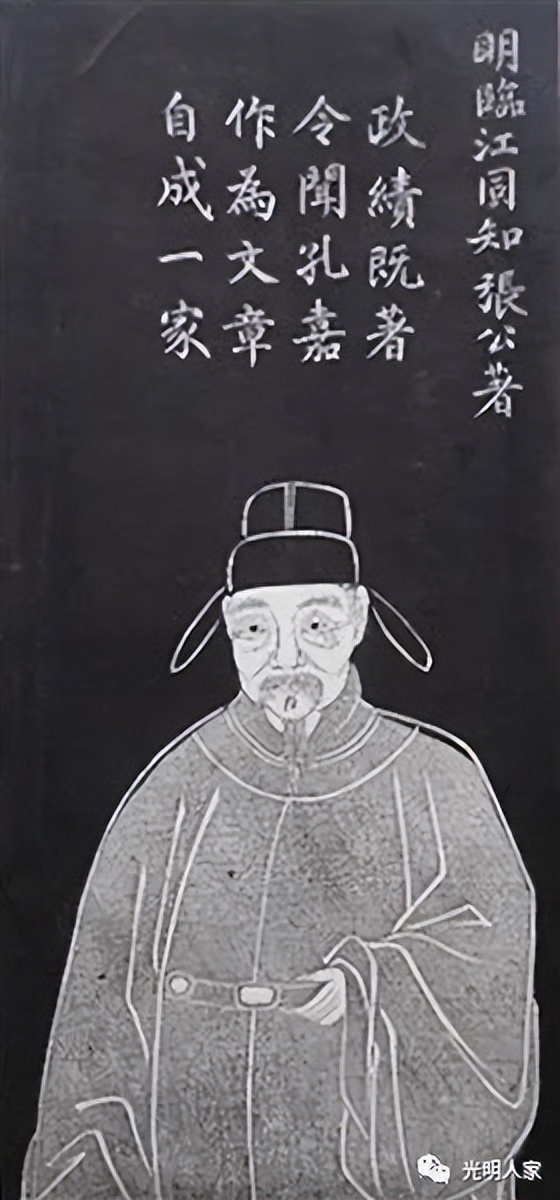 明臨江同知張公著
政績既著
令聞孔嘉
作為文章
自成一家
光明人家